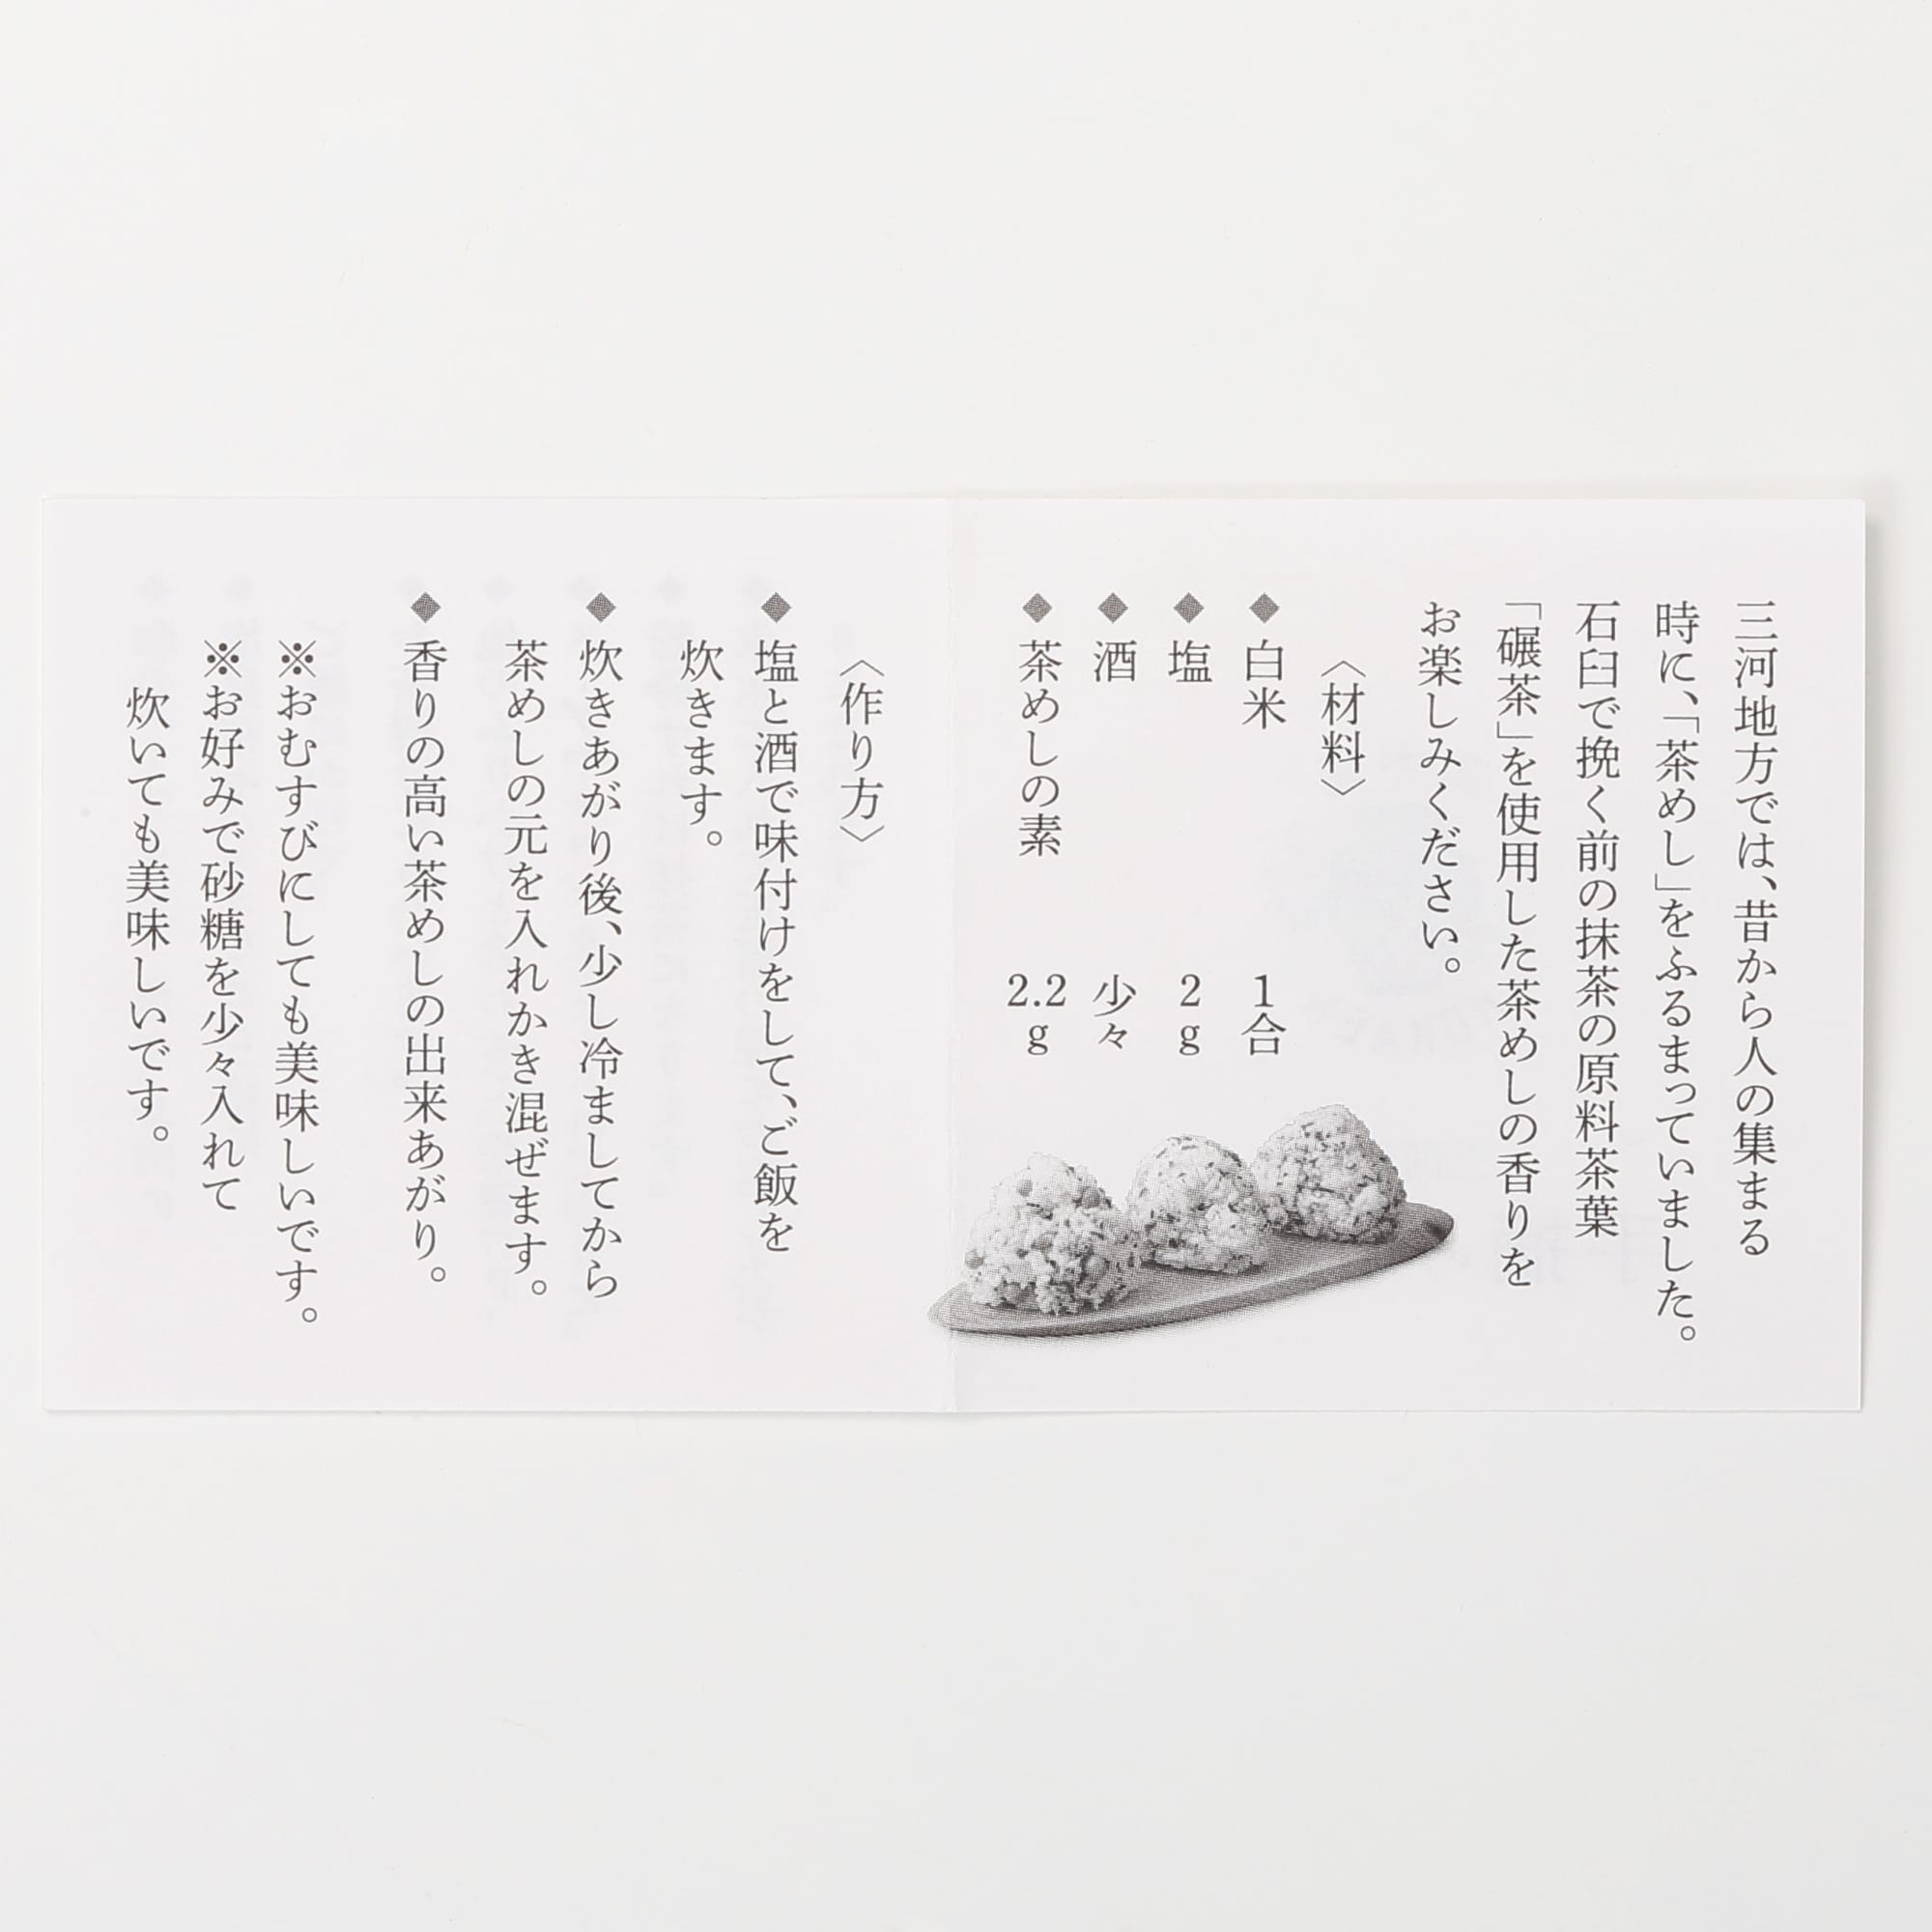 三河地方では、昔から人の集まる
時に、「茶めし」をふるまっていました。
石臼で挽く前の抹茶の原料茶葉
「碾茶」を使用した茶めしの香りを
お楽しみください。
〈材料〉
◆ 白米 1合
◆ 塩 2g
◆ 酒 少々
◆ 茶めしの素 2.2g
〈作り方〉
◆ 塩と酒で味付けをして、ご飯を
炊きます。
◆ 炊きあがり後、少し冷ましてから
茶めしの元を入れかき混ぜます。
◆ 香りの高い茶めしの出来あがり。
※おむすびにしても美味しいです。
※お好みで砂糖を少々入れて
炊いても美味しいです。